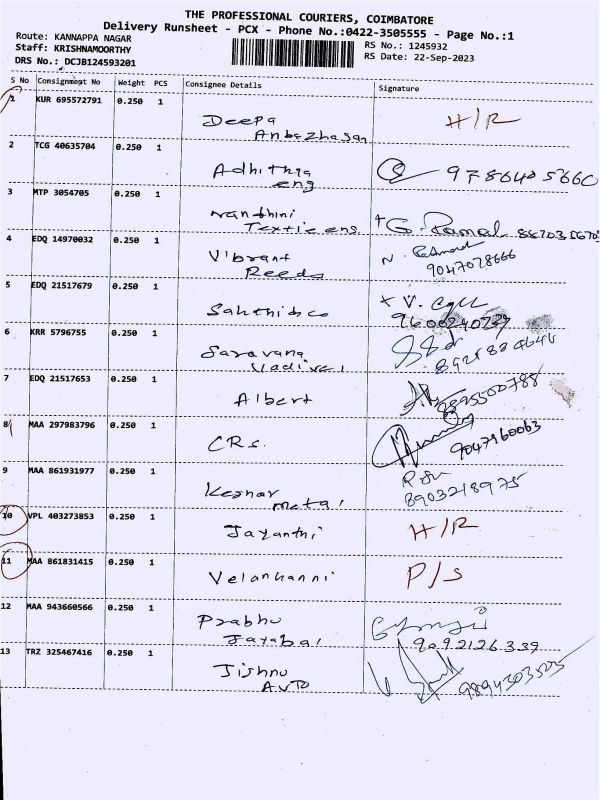 THE PROFESSIONAL COURIERS, COIMBATORE
Delivery Runsheet - PCX - Phone No.:0422-3505555 - Page No.:1
Route: KANNAPPA NAGAR
RS No.: 1245932
Staff: KRISHNAMOORTHY
RS Date: 22-Sep-2023
DRS No.: DCJB124593201
S No Consignment No Weight PCS Consignee Details Signature
1 KUR 695572791 0.250 1
Deepa H/R
Anbazhagan
2 TCG 40635704 0.250 1
Adhithya
eng
3 MTP 3054705 0.250 1
Nandhini
4 EDQ 14970032 0.250 1
Vibrant
Reeds 9047028666
5 EDQ 21517679 0.250 1
9600240729
6 KRR 5796755 0.250 1
Saravana
Vadivel
7 EDQ 21517653 0.250 1
Albert
8 MAA 297983796 0.250 1
CRS. 9047960063
9 MAA 861931977 0.250 1
Metal 8903218975
10 VPL 403273853 0.250 1
Jayanthi H/R
11 MAA 861831415 0.250 1
Velankanni P/S
12 MAA 943660566 0.250 1
Prabhu
9092126339
13 TRZ 325467416 0.250 1
Jishnu
Auto